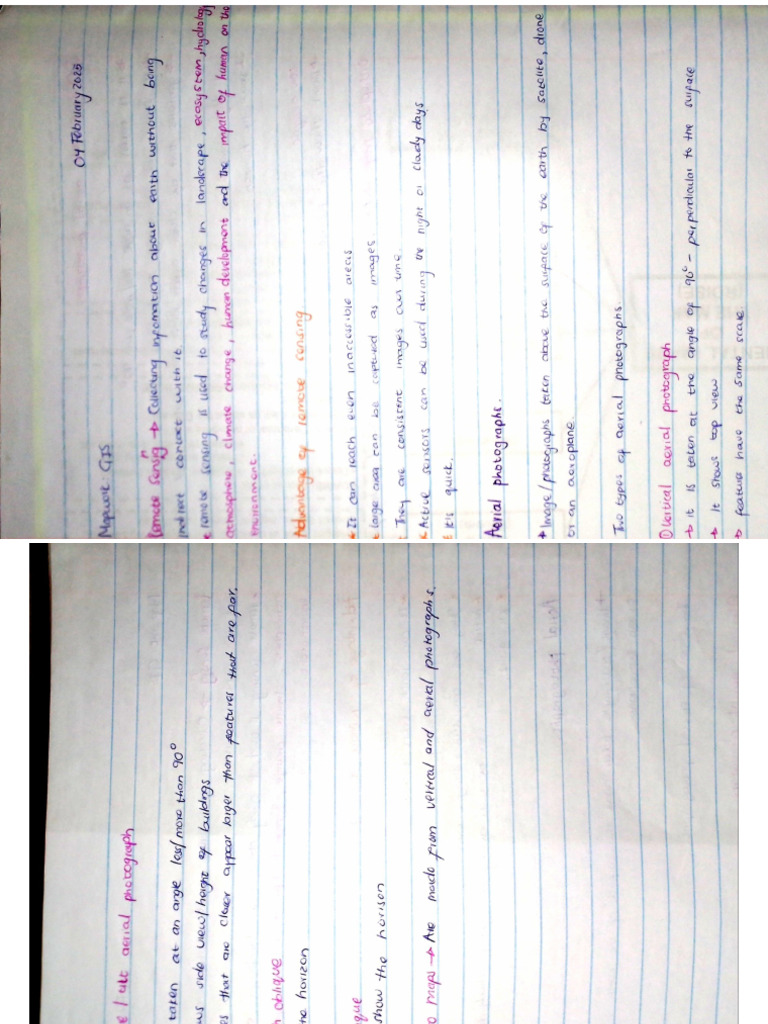 04 February 2025
Mapwork GIS
Remote Sensing → Collecting information about earth without being
indirect contact with it.
remote sensing is used to study changes in landscape, ecosystem, hydrology
atmosphere, climate change, human development and the impact of human on the
environment.
Advantage of remote sensing
It can reach even inaccessible areas
Large area can be captured as images
They are consistent images over time.
Active sensors can be used during the night or cloudy days
It is quick.
Aerial photographs.
Image/photographs taken above the surface of the earth by satelite, drone
or an aeroplane.
Two types of aerial photographs.
① Vertical aerial photograph
→ it is taken at the angle of 90° - perpendicular to the surface
→ It shows top view
→ features have the same scale.
e / tilt aerial photograph
taken at an angle less/more than 90°
ws side view/height of buildings
es that are closer appear larger than features that are far.
h oblique
the horizon
ique
show the horison
o maps → Are made from vertical and aerial photographs.